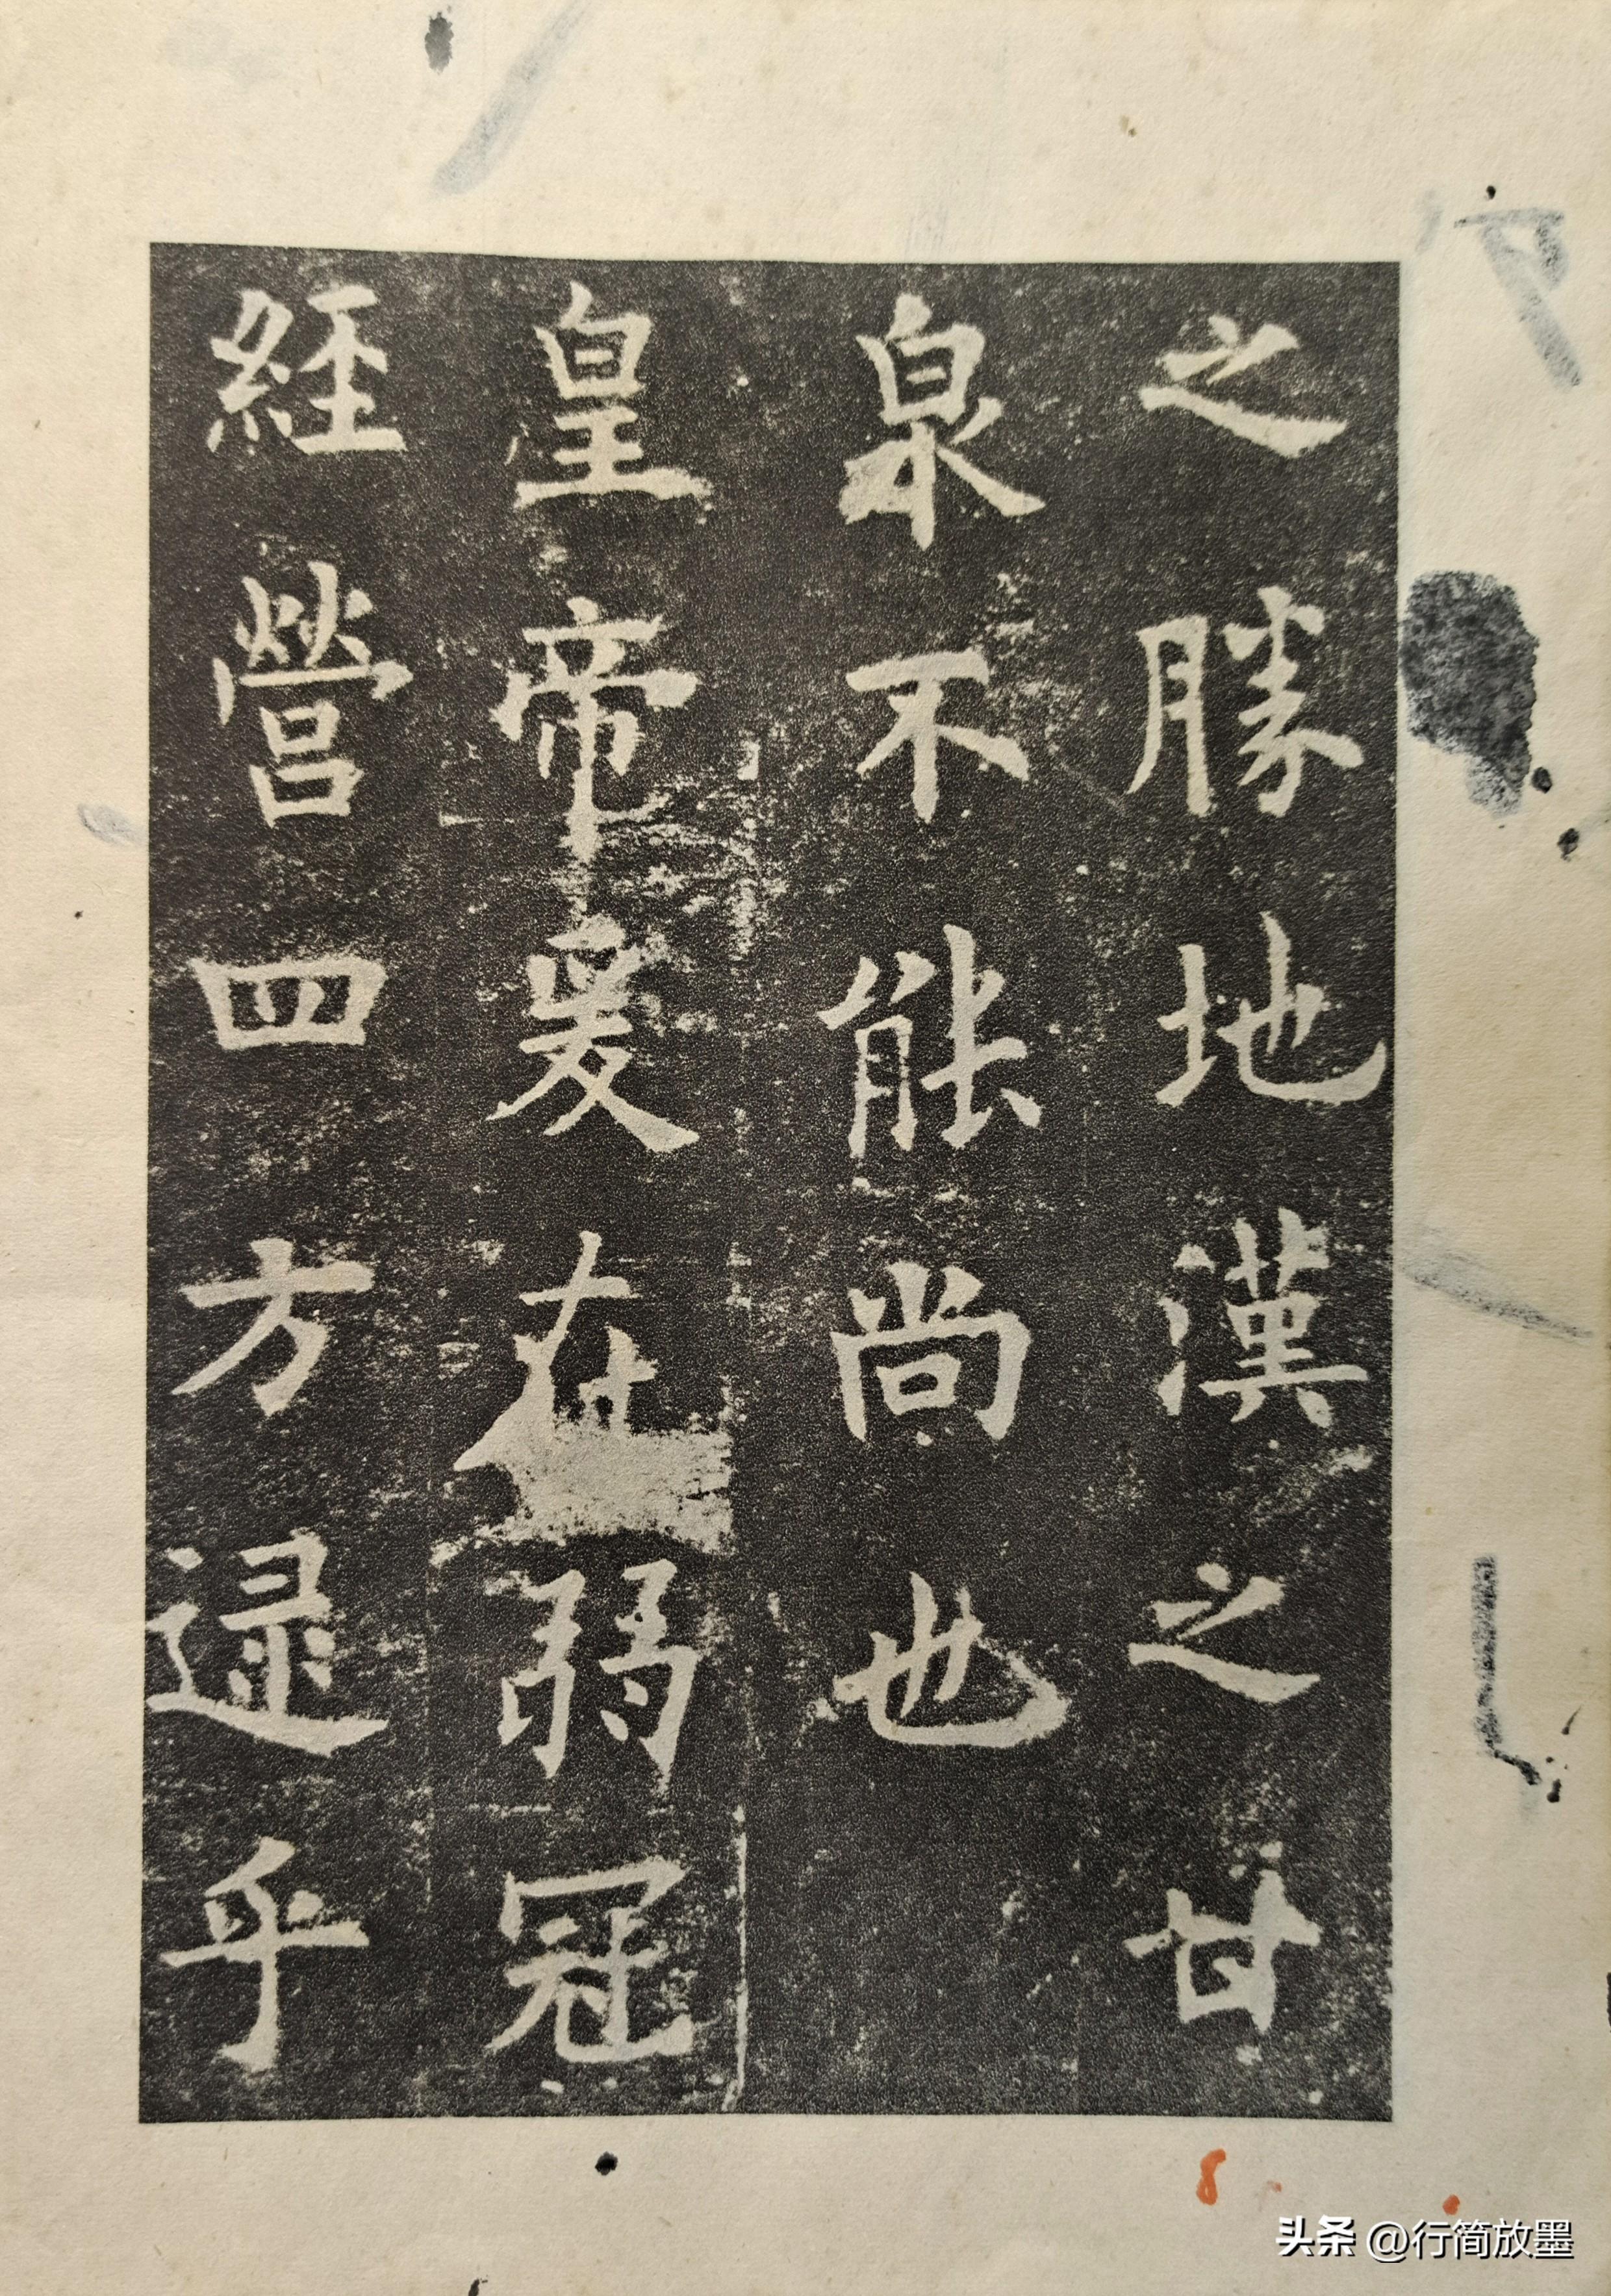 之勝地漢之甘
泉不能尚也
皇帝爰在弱冠
經營四方逯乎
头条 @行简放墨